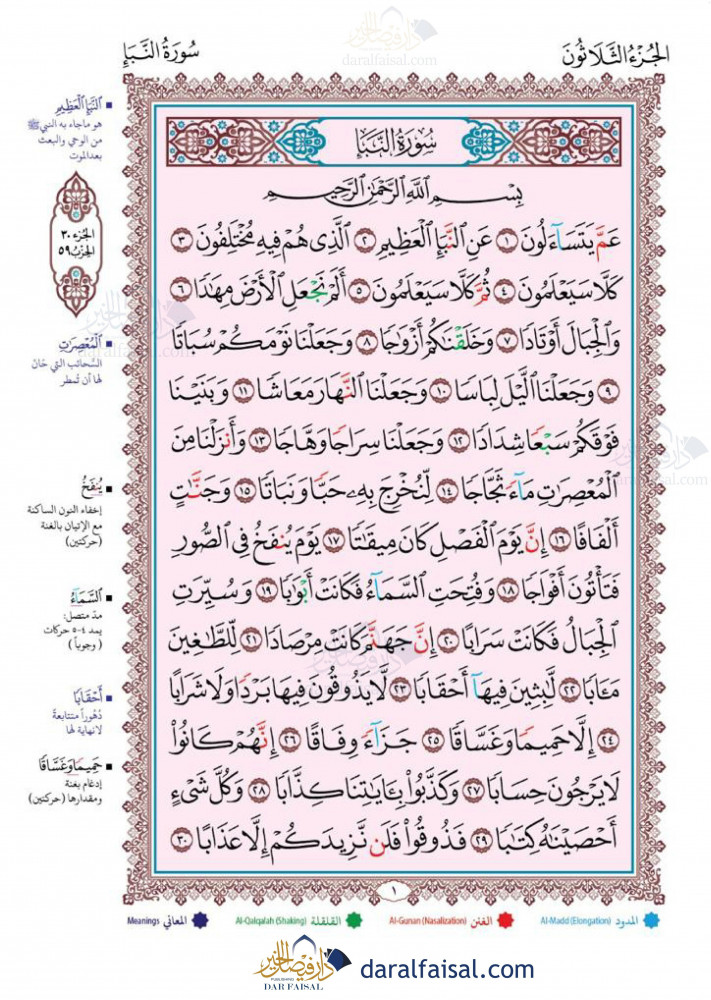 الجُزْءُ الثَّلَاثُونَ
سُورَةُ النَّبَإِ
دار فيصل الخير
daralfaisal.com
سُورَةُ النَّبَإِ
بِسْمِ ٱللَّهِ ٱلرَّحْمَٰنِ ٱلرَّحِيمِ
عَمَّ يَتَسَآءَلُونَ ١ عَنِ ٱلنَّبَإِ ٱلْعَظِيمِ ٢ ٱلَّذِى هُمْ فِيهِ مُخْتَلِفُونَ ٣
كَلَّا سَيَعْلَمُونَ ٤ ثُمَّ كَلَّا سَيَعْلَمُونَ ٥ أَلَمْ نَجْعَلِ ٱلْأَرْضَ مِهَٰدًا ٦
وَٱلْجِبَالَ أَوْتَادًا ٧ وَخَلَقْنَٰكُمْ أَزْوَٰجًا ٨ وَجَعَلْنَا نَوْمَكُمْ سُبَاتًا
٩ وَجَعَلْنَا ٱلَّيْلَ لِبَاسًا ١٠ وَجَعَلْنَا ٱلنَّهَارَ مَعَاشًا ١١ وَبَنَيْنَا
فَوْقَكُمْ سَبْعًا شِدَادًا ١٢ وَجَعَلْنَا سِرَاجًا وَهَّاجًا ١٣ وَأَنزَلْنَا مِنَ
ٱلْمُعْصِرَٰتِ مَآءً ثَجَّاجًا ١٤ لِّنُخْرِجَ بِهِۦ حَبًّا وَنَبَاتًا ١٥ وَجَنَّٰتٍ
أَلْفَافًا ١٦ إِنَّ يَوْمَ ٱلْفَصْلِ كَانَ مِيقَٰتًا ١٧ يَوْمَ يُنفَخُ فِى ٱلصُّورِ
فَتَأْتُونَ أَفْوَاجًا ١٨ وَفُتِحَتِ ٱلسَّمَآءُ فَكَانَتْ أَبْوَٰبًا ١٩ وَسُيِّرَتِ
ٱلْجِبَالُ فَكَانَتْ سَرَابًا ٢٠ إِنَّ جَهَنَّمَ كَانَتْ مِرْصَادًا ٢١ لِّلطَّٰغِينَ
مَـَٔابًا ٢٢ لَّٰبِثِينَ فِيهَآ أَحْقَابًا ٢٣ لَّا يَذُوقُونَ فِيهَا بَرْدًا وَلَا شَرَابًا
٢٤ إِلَّا حَمِيمًا وَغَسَّاقًا ٢٥ جَزَآءً وِفَاقًا ٢٦ إِنَّهُمْ كَانُوا۟
لَا يَرْجُونَ حِسَابًا ٢٧ وَكَذَّبُوا۟ بِـَٔايَٰتِنَا كِذَّابًا ٢٨ وَكُلَّ شَىْءٍ
أَحْصَيْنَٰهُ كِتَٰبًا ٢٩ فَذُوقُوا۟ فَلَن نَّزِيدَكُمْ إِلَّا عَذَابًا ٣٠
١
النَّبَإِ الْعَظِيمِ
هو ماجاء به النبي ﷺ
من الوحي والبعث
بعدالموت
الجزء ٣٠
الحِزب ٥٩
الْمُعْصِرَٰتِ
السَّحائب التي حَانَ
لها أن تُمطر
يُنفَخُ
إخفاء النون الساكنة
مع الإتيان بالغنة
(حركتين)
السَّمَآءُ
مدّ متصل:
يمد ٤-٥ حركات
( وجوباً )
أَحْقَابًا
دُهُوراً متتابعةً
لانهاية لها
حَمِيمًا وَغَسَّاقًا
إدغام بغنة
ومقدارها (حركتين)
المدود Al-Madd (Elongation)
الغنن Al-Gunan (Nasalization)
القلقلة Al-Qalqalah (Shaking)
المعاني Meanings
دار فيصل الخير
PUBLISHING
DAR FAISAL
daralfaisal.com